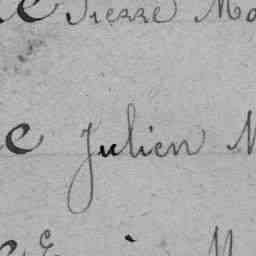 e Pierre Mo
e Julien M